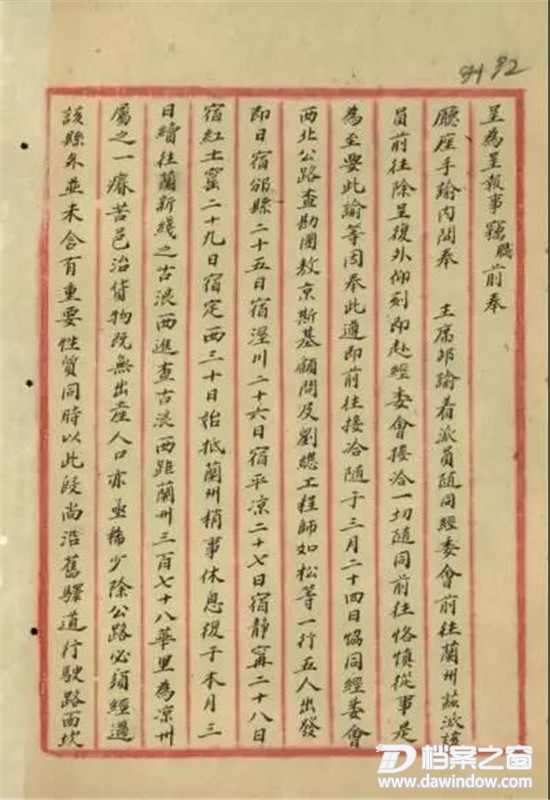 92
呈為呈報事竊職前奉
廳座手諭內開奉 主席邵諭着派員隨同經委會前往蘭州茲派該
員前往除呈復外仰刻即赴經委會接洽一切隨同前往恪慎從事是
為至要此諭等因奉此遵即前往接洽隨于三月二十四日協同經委會
西北公路查勘團敖京斯基顧問及劉總工程師如松等一行五人出發
即日宿邠縣二十五日宿涇川二十六日宿平凉二十七日宿靜寗二十八日
宿紅土窰二十九日宿定西三十日始抵蘭州稍事休息復于本月三
日續往蘭新綫之古浪西進查古浪西距蘭州三百七十八華里為凉州
屬之一瘠苦邑治貨物既無出產人口亦亟稀少除公路必須經過
該縣外並未含有重要性質同時以此段尚沿舊驛道行駛路面坎
档案之窗
www.dawindow.com